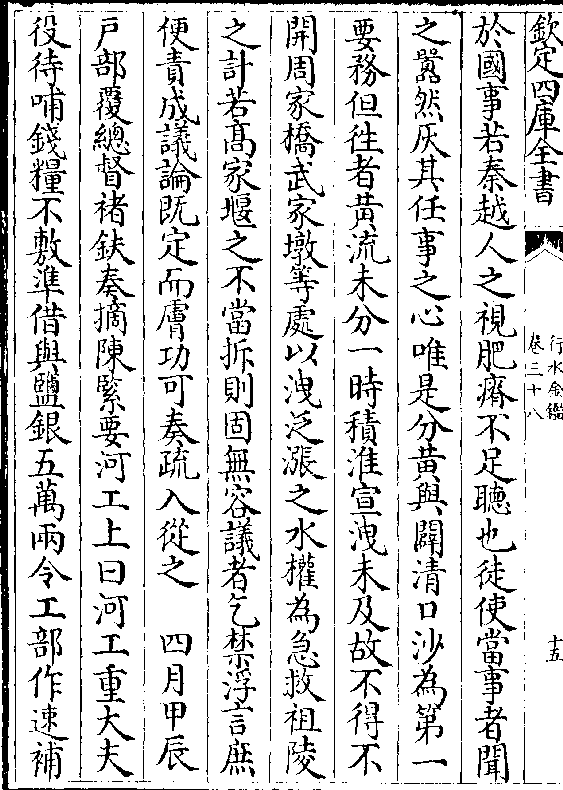 欽定四庫全書
行水金鑑
卷三十八
十五
於國事若秦越人之視肥瘠不足聽也徒使當事者聞
之嚣然灰其任事之心唯是分黃與闢清口沙為第一
要務但徃者黃流未分一時積淮宣洩未及故不得不
開周家橋武家墩等處以洩泛漲之水權為急救祖陵
之計若髙家堰之不當拆則固無容議者乞禁浮言庶
便責成議論既定而膚功可奏疏入從之　四月甲辰
戸部覆總督褚鈇奏摘陳緊要河工上曰河工重大夫
役待哺錢糧不敷準借與鹽銀五萬兩令工部作速補